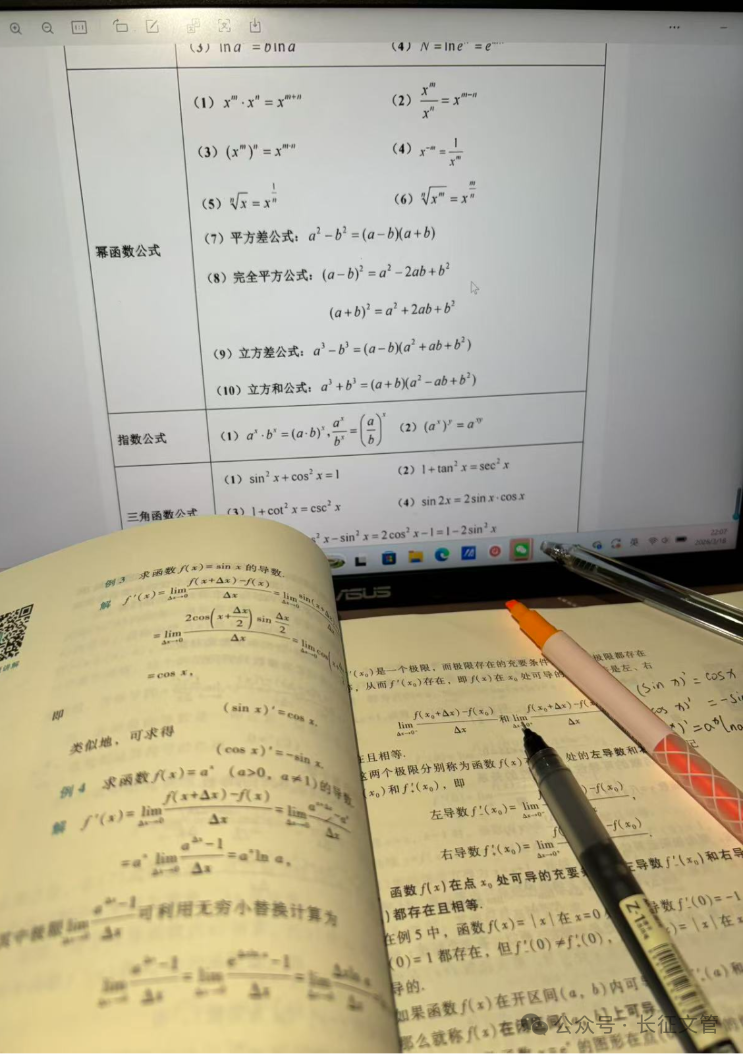 (3) ln a = b ln a (4) N = ln e = e
(1) xᵐ · xⁿ = xᵐ⁺ⁿ (2) xᵐ/xⁿ = xᵐ⁻ⁿ
(3) (xᵐ)ⁿ = xᵐ·ⁿ (4) x⁻ᵐ = 1/xᵐ
(5) ⁿ√x = x^(1/n) (6) ⁿ√xᵐ = x^(m/n)
(7) 平方差公式: a² − b² = (a − b)(a + b)
幂函数公式
(8) 完全平方公式: (a − b)² = a² − 2ab + b²
(a + b)² = a² + 2ab + b²
(9) 立方差公式: a³ − b³ = (a − b)(a² + ab + b²)
(10) 立方和公式: a³ + b³ = (a + b)(a² − ab + b²)
指数公式 (1) aˣ · bˣ = (a·b)ˣ, aˣ/bˣ = (a/b)ˣ (2) (aˣ)ʸ = aˣʸ
(1) sin² x + cos² x = 1 (2) 1 + tan² x = sec² x
三角函数公式 (3) 1 + cot² x = csc² x (4) sin 2x = 2 sin x · cos x
x − sin² x = 2cos² x − 1 = 1 − 2sin² x
ASUS
例3 求函数 f(x) = sin x 的导数.
解 f′(x) = lim_(Δx→0) (f(x+Δx) − f(x))/Δx = lim_(Δx→0) sin(x+Δ
= lim_(Δx→0) 2cos(x + Δx/2) sin Δx/2 / Δx = lim_(Δx→0) cos(x
= cos x,
即
(sin x)′ = cos x.
类似地, 可求得
(cos x)′ = −sin x.
例4 求函数 f(x) = aˣ (a>0, a≠1) 的导数
解 f′(x) = lim_(Δx→0) (f(x+Δx) − f(x))/Δx = lim_(Δx→0) (a^(x+Δx) − aˣ)/Δx
= aˣ lim_(Δx→0) (a^Δx − 1)/Δx = aˣ ln a,
其中极限 lim (a^Δx − 1)/Δx 可利用无穷小替换计算为
lim (a^Δx − 1)/Δx = lim
′(x₀) 是一个极限, 而极限存在的充要条件 极限都存在
, 从而 f′(x₀) 存在, 即 f(x) 在 x₀ 处可导的 是左、右
lim_(Δx→0⁻) (f(x₀+Δx) − f(x₀))/Δx 和 lim f(x₀+Δx) − f(x₀ / Δx
在且相等.
这两个极限分别称为函数 f(x) 处的左导数和
(x₀) 和 f′₊(x₀), 即
左导数 f′₋(x₀) = lim_(Δx→0⁻) ) − f(x₀) ,
右导数 f′₊(x₀) = lim_(Δx→0⁺) ) − f(x₀) ,
函数 f(x) 在点 x₀ 处可导的充要 左导数 f′₋(x₀) 和右导
) 都存在且相等.
在例5中, 函数 f(x) = |x| 在 x=0 导数 f′₋(0) = −1
(0) = 1 都存在, 但 f′₋(0) ≠ f′₊(0), ) = |x| 在 x
导的.
如果函数 f(x) 在开区间 (a, b) 内可 (a) 和
那么就称 f(x) 在 上可导
的图形在点
(sin x)′ = cos x
cos x)′ = −sin
)′ = aˣ lna
公众号 · 长征文管